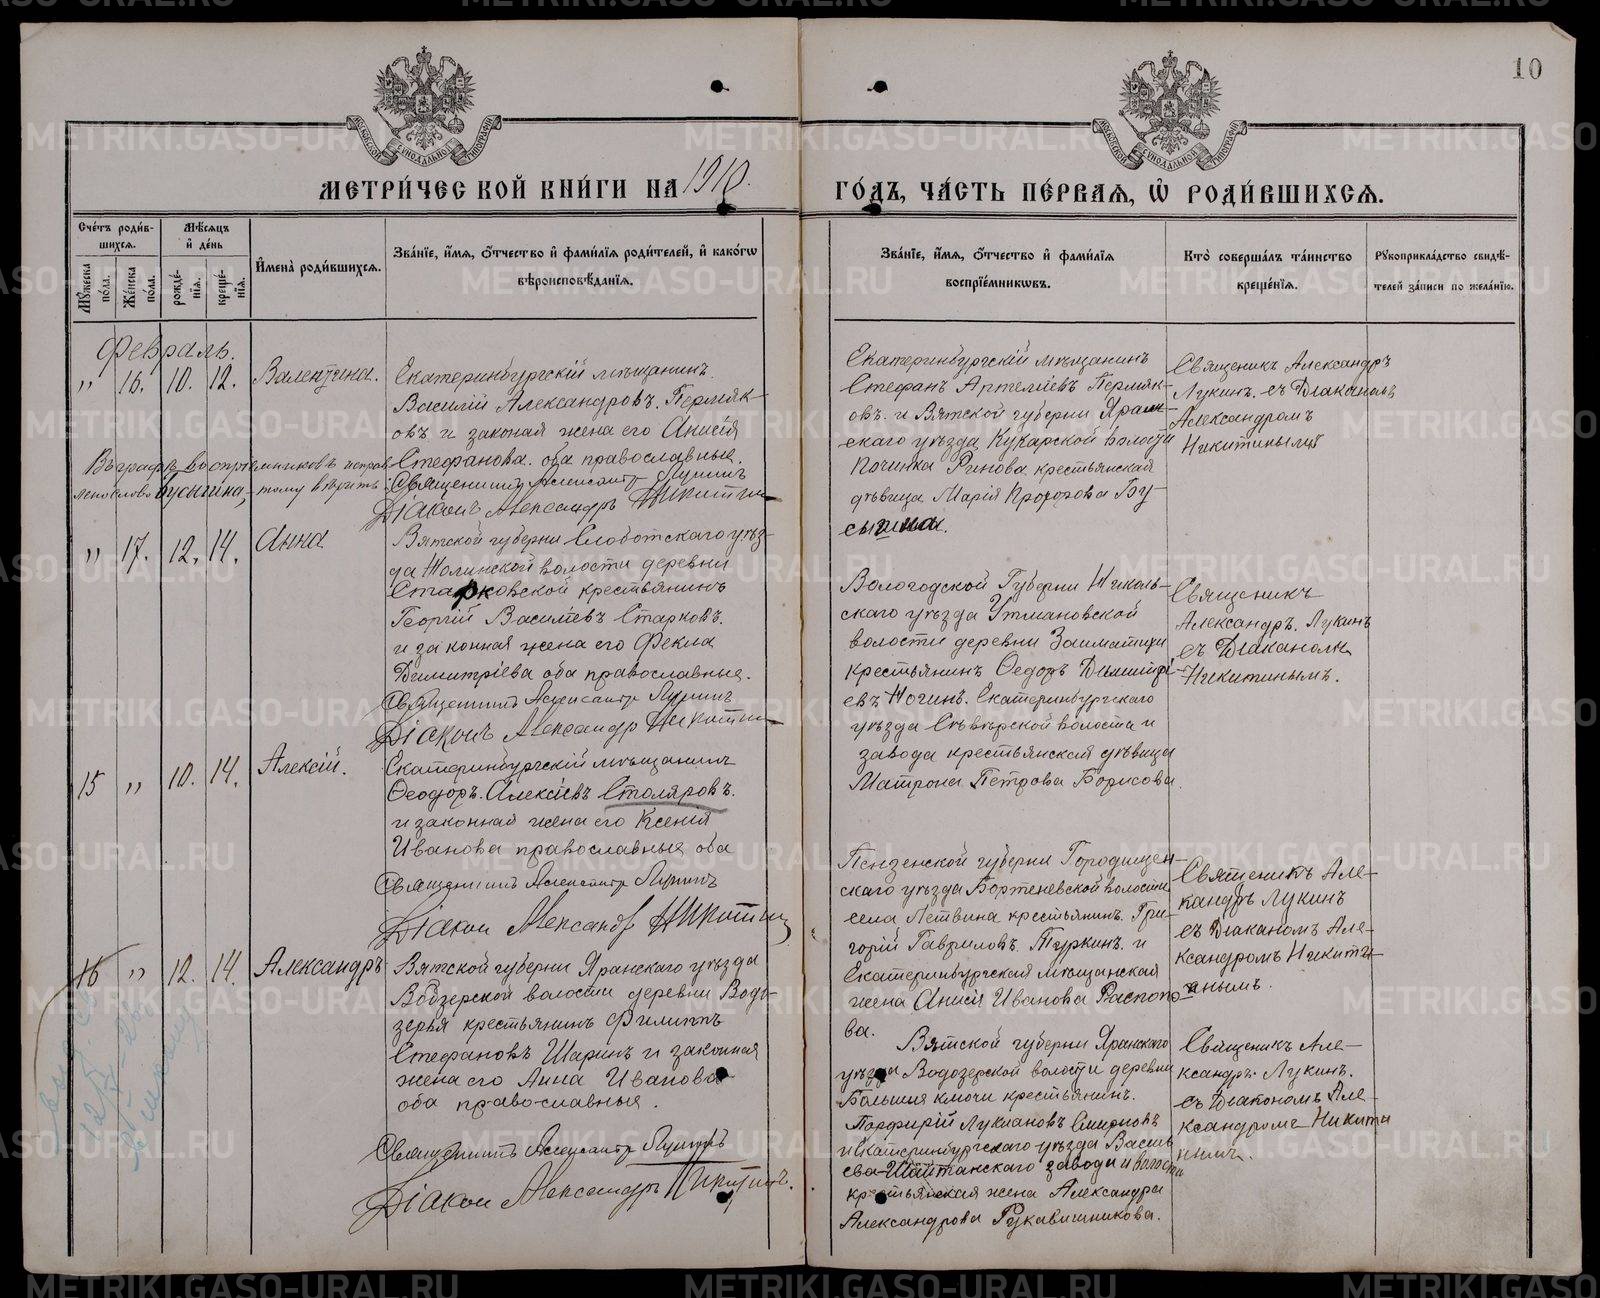 10
МЕТРИ́ЧЕСКОЙ КНИ́ГИ НА 1910.
ГО́ДЪ, ЧА́СТЬ ПЕ́РВАѦ, Ѽ РОДИ́ВШИХСѦ.
Сче́тъ роди́в-
шихсѧ.
Мꙋ́жеска
по́ла.
Же́нска
по́ла.
Мѣ́сѧцъ
и҆ де́нь
рожде́-
нїѧ.
креще́-
нїѧ.
И҆мена̀ роди́вшихсѧ.
Зва́нїе, и҆́мѧ, ѻ҆́тчество и҆ фами́лїѧ роди́телей, и҆ како́гѡ
вѣроисповѣ́данїѧ.
Зва́нїе, и҆́мѧ, ѻ҆́тчество и҆ фами́лїѧ
воспрїе́мникѡвъ.
Кто̀ соверша́лъ та́инство
креще́нїѧ.
Рꙋкоприкла́дство свидѣ́-
телей за́писи по жела́нїю.
Февраль.
" 16. 10. 12. Валентина.
Екатеринбургскій мѣщанинъ
Василій Александровъ Пермяк-
овъ и законая жена его Анисія
Стефанова. оба православные.
Въ графѣ воспріемниковъ исправ
лено слово Бусыгина, тому вѣрить
Священникъ Александръ Лукинъ
Діаконъ Александръ Никитинъ
Екатеринбургскій мѣщанинъ
Стефанъ Артеміевъ Пермяк-
овъ. и Вятской губерни Яран-
скаго уѣзда Кукарской волости
Починка Ринова крестьянская
дѣвица Марія Прохорова Бу-
сыгина.
Священикъ Александръ
Лукинъ. съ Діакономъ
Александромъ
Никитинымъ
" 17. 12. 14. Анна
Вятской губерни Слоботскаго уѣз-
да Холинской волости деревни
Старковской крестьянинъ
Георгій Василіевъ Старковъ.
и законная жена его Фекла
Димитріева оба православные.
Священникъ Александръ Лукинъ
Діаконъ Александръ Никитинъ
Вологодской Губерни Николь-
скаго уѣзда Утмановской
волости деревни
крестьянинъ Ѳедоръ Димитрі-
евъ Ногинъ. Екатеринбургскаго
уѣзда Сѣвѣрской волости и
завода крестьянская дѣвица
Матрона Петрова Борисова.
Священикъ
Александръ. Лукинъ
съ Діаканомъ
Никитинымъ.
15 " 10. 14. Алексій.
Екатеринбургскій мѣщанинъ
Ѳеодоръ. Алексіевъ Столяровъ.
и законная жена его Ксенія
Иванова православные оба
Священникъ Александръ Лукинъ
Діакон Александръ Никитинъ
Пензенской губерни Городищен-
скаго уѣзда Бортеневской волости
села Летвина крестьянинъ Гри-
горій Гавриловъ. Туркинъ. и
Екатеринбургская мѣщанская
жена Анисія Иванова Распопо-
ва.
Священикъ Але-
ксандръ Лукинъ
съ Діаканомъ Але-
ксандромъ Никити-
нымъ.
16 " 12. 14. Александръ
Вятской губерни Яранскаго уѣзда
Водзерской волости деревни Водо-
зерья крестьянинъ Филиппъ
Стефановъ Шаринъ и законная
жена его Анна Иванова
оба православные.
Священникъ Александръ Лукинъ
Діакон Александръ Никитинъ.
Вятской губерни Яранскаго
уѣзда Водозерской волости деревни
Большия ключи крестьянинъ.
Порфирій Лукіановъ Смирновъ
и Екатеринбургскаго уѣзда Василь
ево-Шайтанскаго завода и волости
крестьянская жена Александра
Александрова Рукавишникова.
Священикъ Але-
ксандръ. Лукинъ.
съ Діакономъ Але-
ксандромъ Никити
нымъ.
METRIKI.GASO-URAL.RU